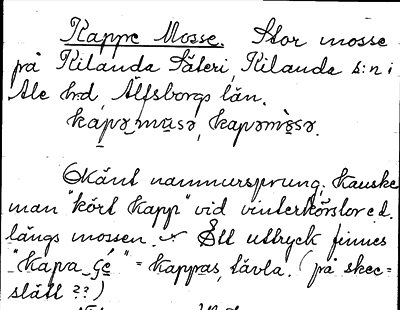 Kappe Mosse. Stor mosse
på Kilanda Säteri, Kilanda s:n i
Ale h:d, Älfsborgs län.
kapə_musə, kapəmùsə.
Okänt namnursprung, kanske
man "kört kapp" vid vinterkörslor e.d.
längs mossen. Ett uttryck finnes
"kapa_gé" = kappas, tävla. (på skee-
slätt ??)